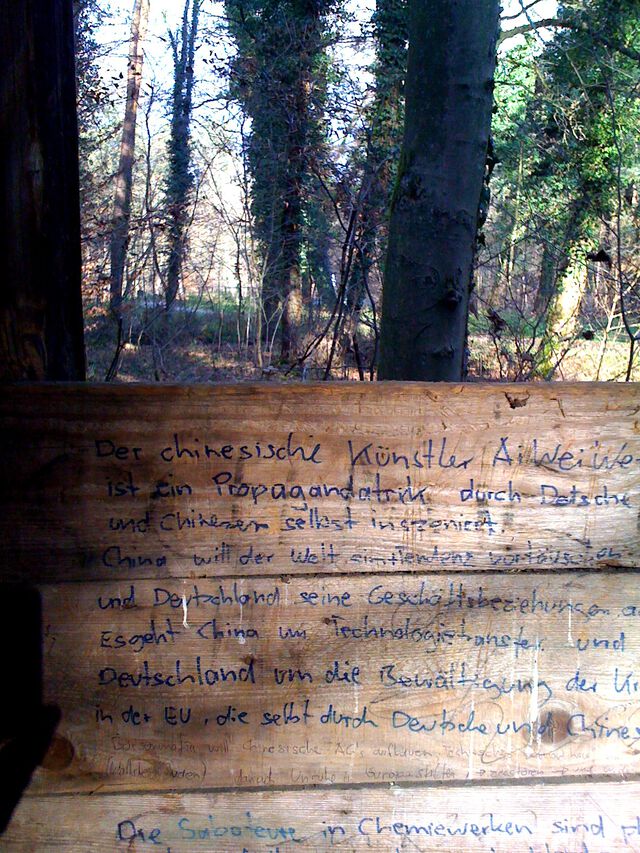 Der chinesische Künstler Ai Wei We
ist ein Propagandatrik durch Detsche
und Chinesen selbst inszeniert
China will der Welt vortäuschen
und Deutschland seine Geschäftsbeziehungen a
Es geht China um Technologietransfer und
Deutschland um die Bewältigung der Kr
in der EU, die selbst durch Deutsche und Chines
will chinesische AG's aufbauen
danach Unruhe in Europa stiften
Die Saboteure in Chemiewerken sind